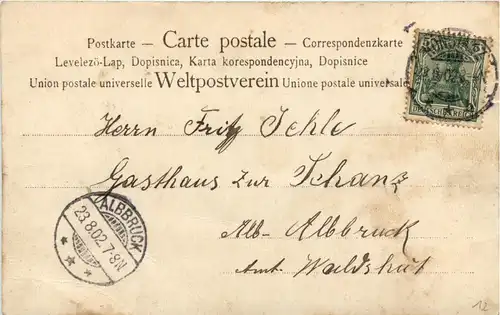 Postkarte — Carte postale — Correspondenzkarte
Levelező-Lap, Dopisnica, Karta korespondencyjna, Dopisnice
Union postale universelle Weltpostverein Unione postale universale
23.8.02
Herrn Fritz Jehle
Gasthaus zur Schanz
Alb-Albbruck
Amt Waldshut
ALBBRUCK
23.8.02.7-8N
12